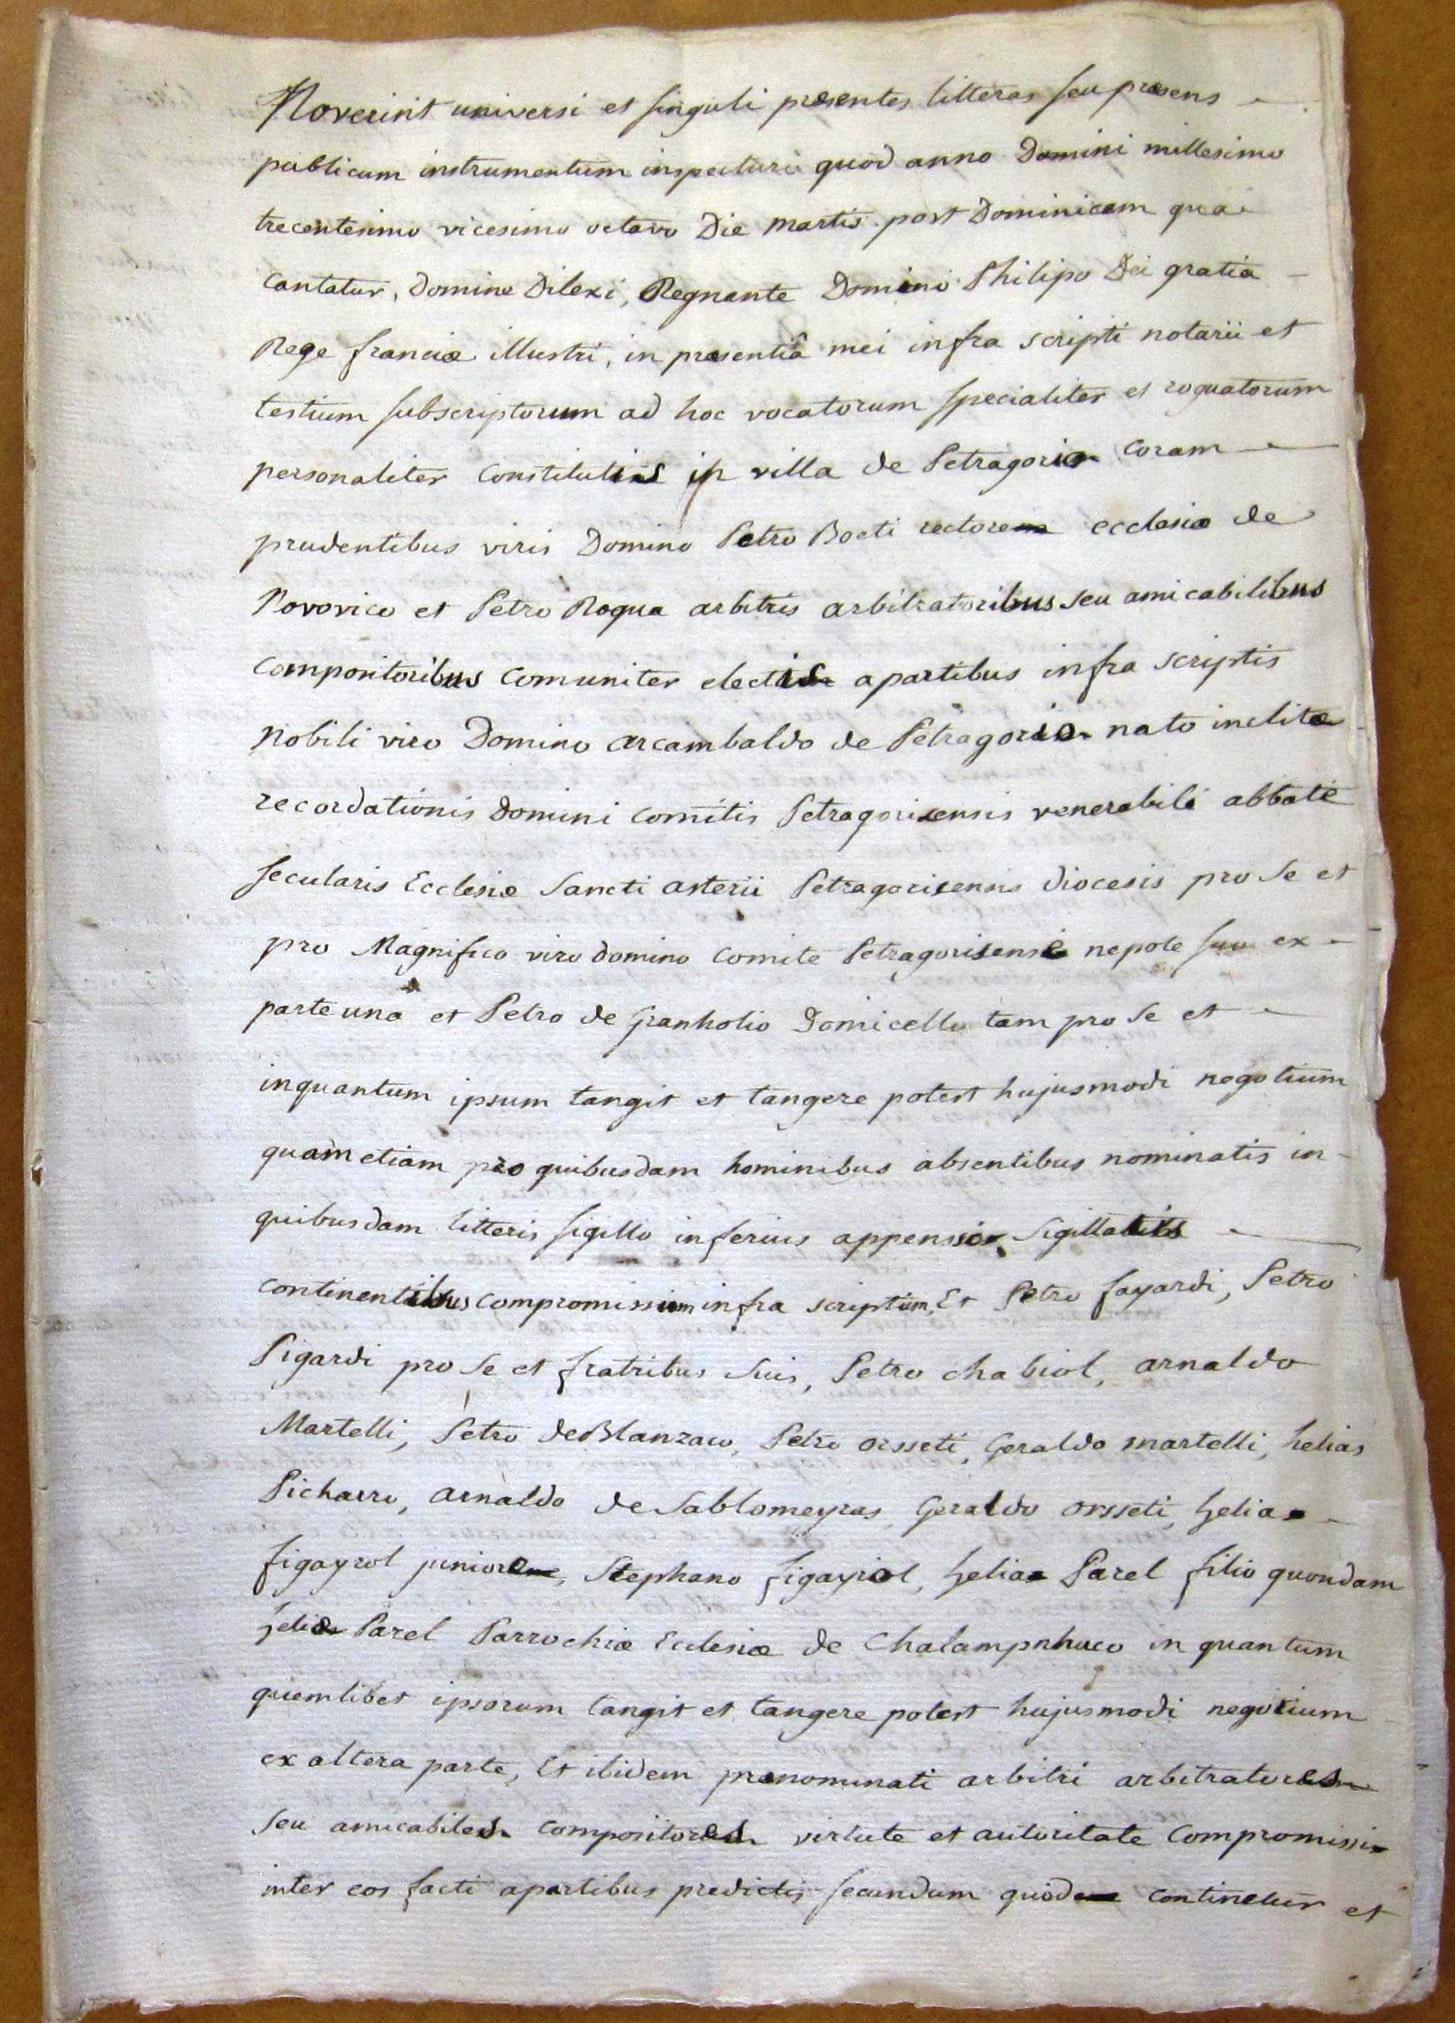 Noverint universi et singuli præsentes litteras seu præsens
publicum instrumentum inspecturi quod anno Domini millesimo
trecentesimo vicesimo octavo Die martis post Dominicam qua
cantatur, Domine Dilexi, Regnante Domino Philipo Dei gratia
Rege franciæ illustri, in præsentiâ mei infra scripti notarii et
testium subscriptorum ad hoc vocatorum specialiter et roguatorum
personaliter constitutis in villa de Petragoris coram
prudentibus viris Domino Petro Boeti rectore ecclesiæ de
Novovico et Petro Roqua arbitris arbitratoribus seu amicabilibus
compositoribus comuniter electis a partibus infra scriptis
nobili viro Domino arcambaldo de Petragoris nato inclitæ
recordationis Domini comitis Petragoricensis venerabili abbate
secularis Ecclesiæ Sancti asterii Petragoricensis diocesis pro se et
pro Magnifico viro domino comite Petragoricense nepote suo ex
parte una et Petro de Granholio Domicello tam pro se et
inquantum ipsum tangit et tangere potest hujusmodi negotium
quam etiam pro quibusdam hominibus absentibus nominatis in
quibusdam litteris sigillo inferius appenso sigillatis
continentibus compromissum infra scriptum, Et Petro fayardi, Petro
Pigardi pro se et fratribus suis, Petro chabiol, arnaldo
Martelli, Petro de Blanzaco, Petro orsseti, Geraldo martelli, helias
Picharro, arnaldo de Sablomeyras, Geraldo orsseti, helia
figayrol juniore, Stephano figayrol, helia Parel filio quondam
heliæ Parel Parrochiæ Ecclesiæ de Chalampnhaco in quantum
quemlibet ipsorum tangit et tangere potest hujusmodi negotium
ex altera parte, Et ibidem prænominati arbitri arbitratores
seu amicabiles compositores virtute et autoritate compromissi
inter eos facti a partibus predictis secundum quod continetur et